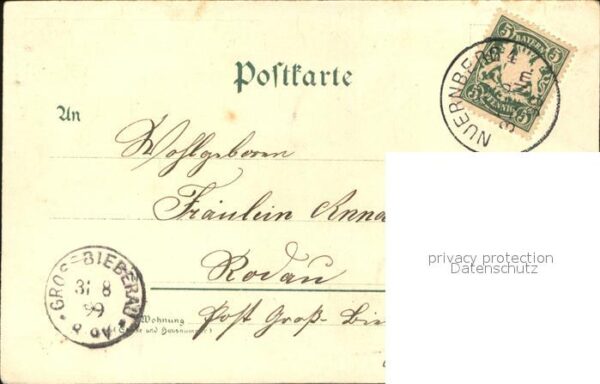 Postkarte
An
5 BAYERN 5
5 PFENNIG 5
NUERNBERG
Wohlgeboren
Fräulein Anna
Rodau
Post Groß-Bie
Wohnung
(Straße und Hausnummer)
GROSS-BIEBERAU
31 8
99
8-9V
privacy protection
Datenschutz